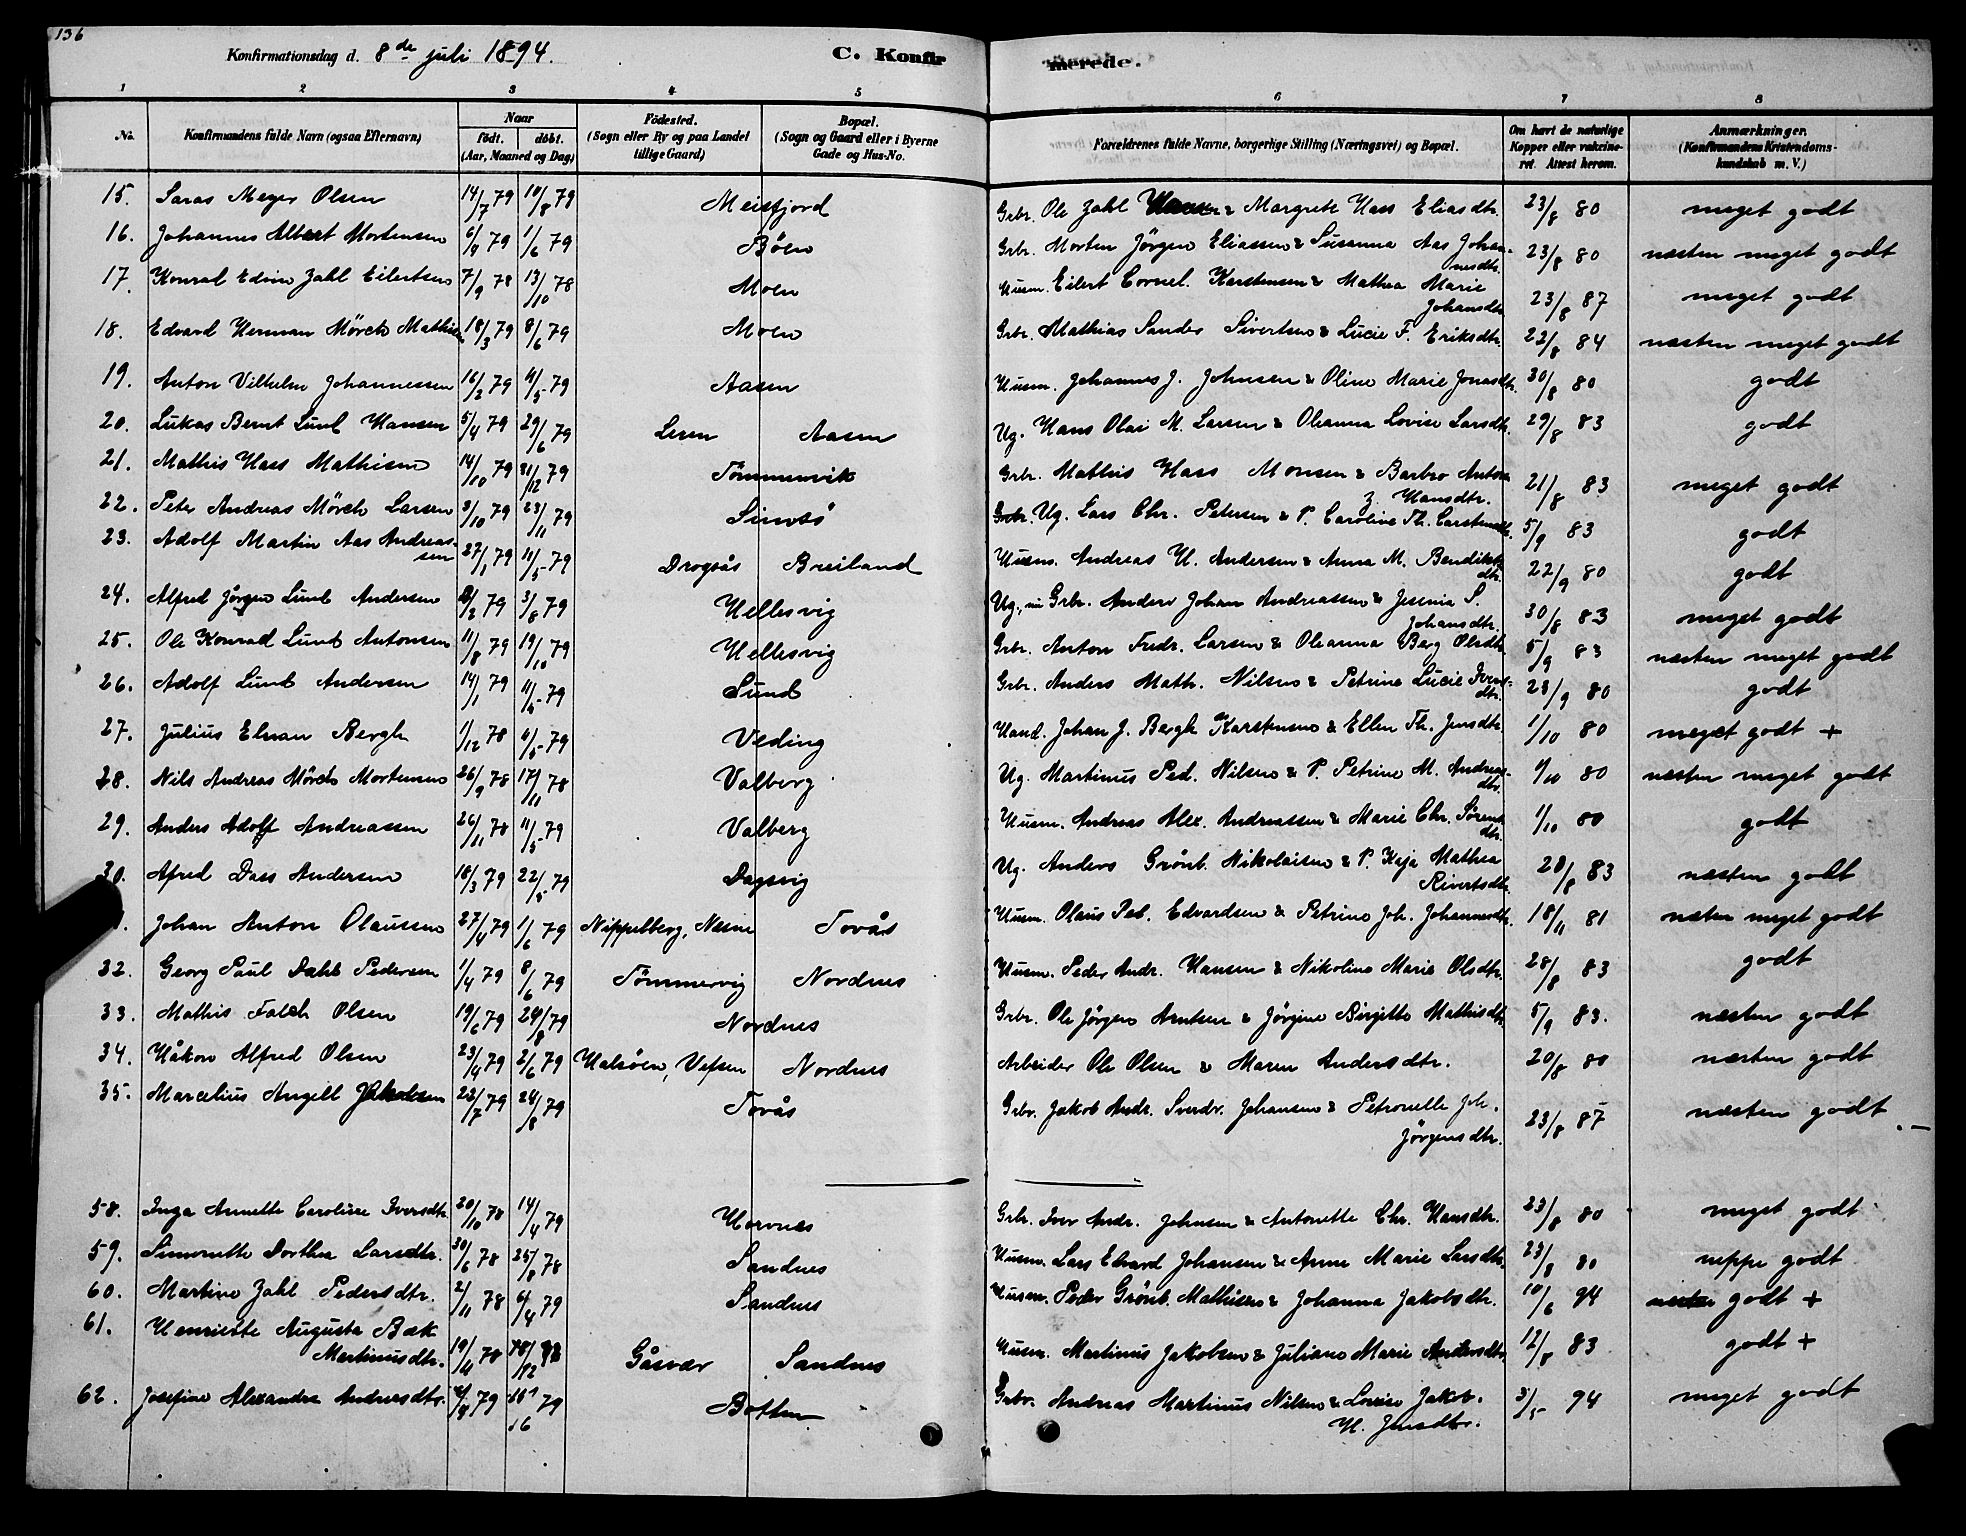 136
Konfirmationsdag d. 8de juli 1894.
C. Konfirmerede.
1 2 3 4 5 6 7 8
No. Konfirmandens fulde Navn (ogsaa Efternavn) Naar födt. döbt. (Aar, Maaned og Dag) Födested. (Sogn eller By og paa Landet tillige Gaard) Bopæl. (Sogn og Gaard eller i Byerne Gade og Hus-No. Forældrenes fulde Navne, borgerlige Stilling (Næringsvei) og Bopæl. Om havt de naturlige Kopper eller vakcineret. Attest herom. Anmærkninger. (Konfirmandens Kristendomskundskab m. V.)
15. Saras Meyer Olsen 14/7 79 10/8 79 Meisfjord Grbr. Ole Zahl Hansen & Margrete Hass Eliasdtr. 23/8 80 meget godt
16. Johannes Albert Mortensen 6/4 79 1/6 79 Bölen Grbr. Morten Jörgen Eliassen & Susanna Aas Johannesdtr. 23/8 80 næsten meget godt
17. Konrad Edvin Zahl Eilertsen 7/9 78 13/10 78 Moen Husm. Eilert Cornel. Karstensen & Mathea Marie Johansdtr. 23/8 87 meget godt
18. Edvard Herman Mörch Mathisen 18/3 79 8/6 79 Moen Grbr. Mathias Sander Sivertsen & Lucie F. Eriksdtr. 22/8 84 næsten meget godt
19. Anton Vilhelm Johannessen 16/2 79 11/5 79 Aasen Husm. Johannes J. Johnsen & Oline Marie Jonasdtr. 30/8 80 godt
20. Lukas Bernt Lund Hansen 5/4 79 29/6 79 Leren Aasen Ug. Hans Olai M. Larsen & Oleanna Lovise Larsdtr. 29/8 83 godt
21. Mathis Hass Mathisen 14/10 79 31/12 79 Tömmervik Grbr. Mathis Hass Monsen & Barbro Anton Z. Hansdtr. 21/8 83 meget godt
22. Peter Andreas Mörch Larsen 3/10 79 23/11 79 Simsö Grbr. Ug. Lars Chr. Petersen & P. Caroline Th. Carstensdtr. 5/9 83 godt
23. Adolf Martin Aas Andreassen 27/1 79 11/5 79 Drogsås Breiland Husm. Andreas H. Andersen & Anna M. Bendiktsdtr. 22/9 80 godt
24. Alfred Jörgen Lund Andersen 2/2 79 3/8 79 Hellesvig Ug., nu Grbr. Anders Johan Andreassen & Jesenia S. Johansdtr. 30/8 83 meget godt
25. Ole Konrad Lund Antonsen 11/8 79 19/10 79 Hellesvig Grbr. Anton Fredr. Larsen & Oleanna Berg Olsdtr. 5/9 83 næsten meget godt
26. Adolf Lund Andersen 14/1 79 11/5 79 Sund Grbr. Anders Math. Nilsen & Petrine Lucie Iversdtr. 23/9 80 godt
27. Julius Elnan Bergh 1/12 78 6/5 79 Veding Hand. Johan J. Bergh Karstensen & Ellen Th. Jensdtr. 1/10 80 meget godt +
28. Nils Andreas Mörch Mortensen 26/9 78 17/11 78 Valberg Ug. Martinus Ped. Nilsen & P. Petrine M. Andreasdtr. 1/10 80 næsten meget godt
29. Anders Adolf Andreassen 26/11 78 11/5 79 Valberg Husm. Andreas Alex. Andreassen & Marie Chr. Sörensdtr. 1/10 80 godt
30. Afred Dass Andersen 18/3 79 22/5 79 Dagsvig Ug. Anders Grönb. Nikolaisen & P. Kaja Mathea Sivertsdtr. 28/8 83 næsten godt
Johan Anton Olaussen 27/4 79 1/6 79 Nippelberg, Nesne Tovås Husm. Olaus Ped. Edvardsen & Petrine Joh. Johannesdtr. 18/11 81 næsten meget godt
32. Georg Paul Dahl Pedersen 1/4 79 8/6 79 Tömmervig Nordnes Husm. Peder Andr. Hansen & Nikoline Marie Olsdtr. 28/8 83 godt
33. Mathis Falch Olsen 19/6 79 24/8 79 Nordnes Grbr. Ole Jörgen Arntsen & Jörgine Birgitte Mathisdtr. 5/9 83. næsten godt
34. Håkon Alfred Olsen 23/4 79 2/6 79 Halsöen, Vefsen Nordnes Arbeider Ole Olsen & Maren Andersdtr. 20/8 80 næsten godt
35. Marcelius Angell Jakobsen 22/7 79 24/8 79 Tovås Grbr. Jakob Andr. Sverdr. Johansen & Petronelle Joh. Jörgensdtr. 23/8 87 næsten godt
58. Inga Annette Caroline Iversdtr. 20/10 78 14/4 79 Hornnes Grbr. Iver Andr. Johnsen & Antonette Chr. Hansdtr. 23/8 80 meget godt
59. Simonette Dorthea Larsdtr. 30/6 78 25/8 78 Sandnes Husm. Lars Edvard Johansen & Anne Marie Larsdtr. 23/8 80 neppe godt
60. Martine Zahl Pedersdtr. 2/11 78 6/4 79 Sandnes Husm. Peder Grönb. Mathisen & Johanna Jakobsdtr. 10/6 94 godt +
61. Henriette Augusta Bæk Martinusdtr. 19/4 78 Gåsvær Sandnes Husm. Martinus Jakobsen & Juliane Marie Andersdtr. 12/8 83 godt +
62. Josefine Alexandra Andreasdtr. 79 79 Botten Grbr. Andreas Martinus Nilsen & Lovise Jakob. H. Jensdtr. 3/5 94 meget godt